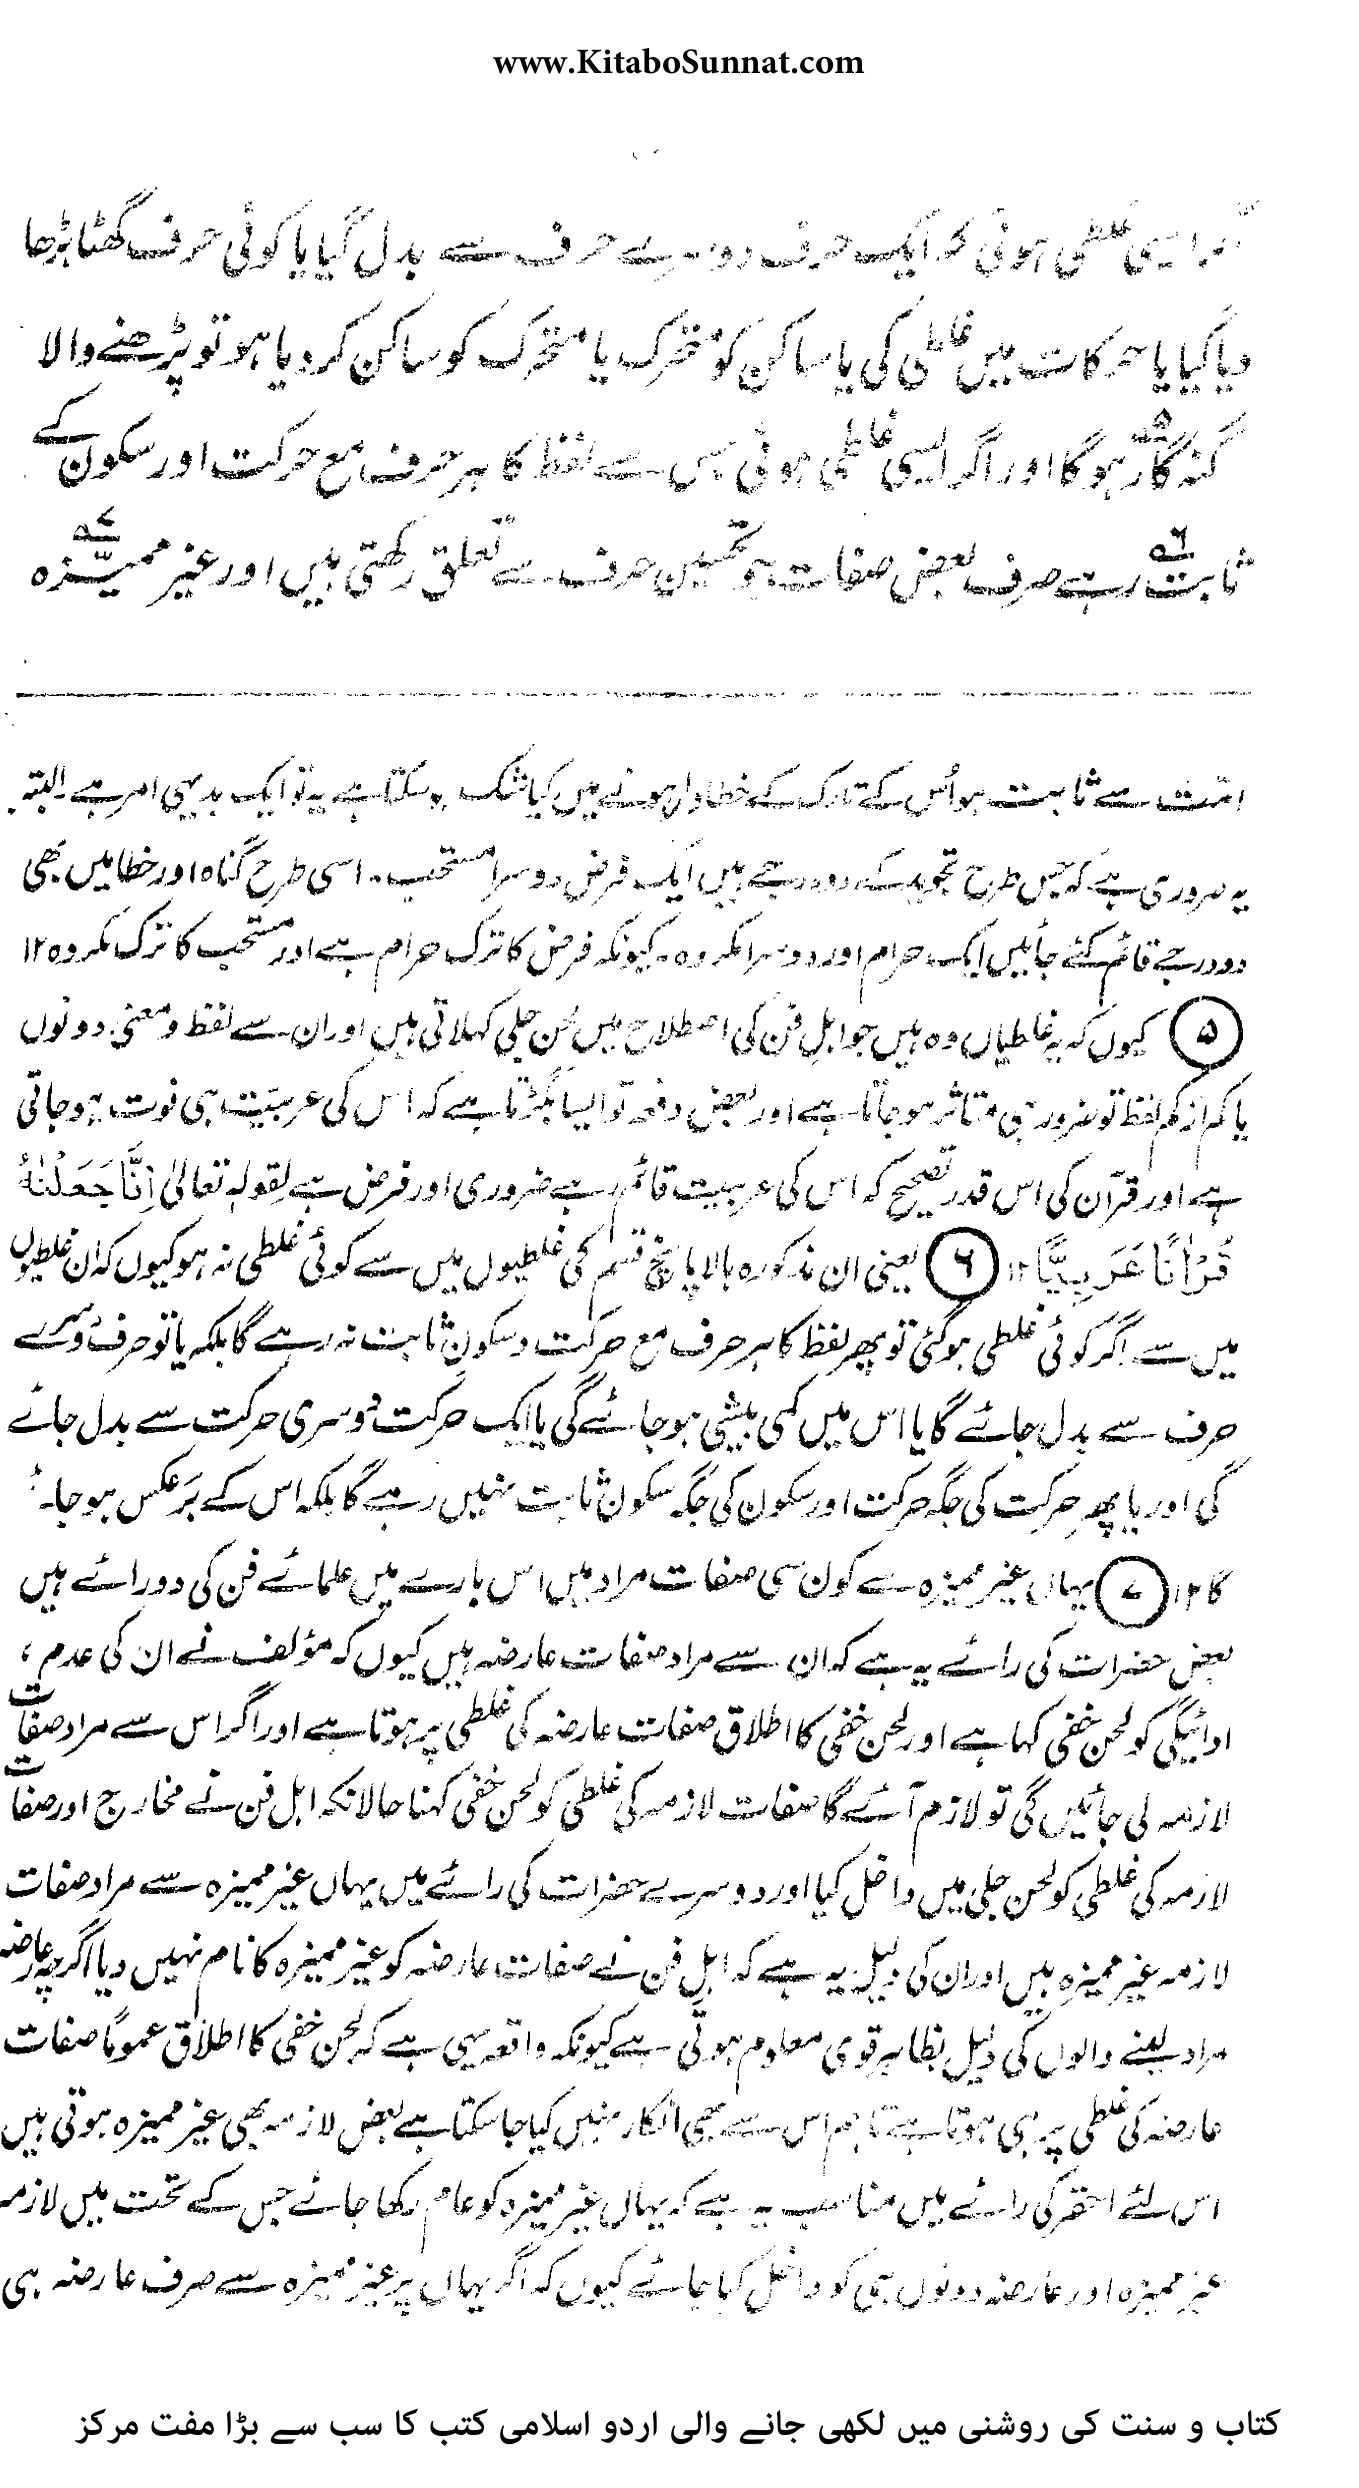 www.KitaboSunnat.com
ایسی غلطی ہوئی کہ ایک حرف دوسرے حرف سے بدل گیا یا کوئی حرف گھٹا بڑھا
دیا گیا یا حرکات میں غلطی کی یا ساکن کو متحرک یا متحرک کو ساکن کر دیا ہو تو پڑھنے والا
گنہگار ۵ ہوگا اور اگر ایسی غلطی ہوئی جس سے لفظ کا ہر حرف مع حرکت اور سکون کے
ثابت ۶ رہے صرف بعض صفات جو تحسین حرف سے تعلق رکھتی ہیں اور غیر ممیّزہ ۷
امت سے ثابت ہو اُس کے تارک کے خطاوار ہونے میں کیا شک ہو سکتا ہے یہ تو ایک بدیہی امر ہے البتہ
یہ ضروری ہے کہ جس طرح تجوید کے دو درجے ہیں ایک فرض دوسرا مستحب۔ اسی طرح گناہ اور خطا میں بھی
دو درجے قائم کئے جائیں ایک حرام اور دوسرا مکروہ۔ کیونکہ فرض کا ترک حرام ہے اور مستحب کا ترک مکروہ ۱۲
۵ کیوں کہ یہ غلطیاں وہ ہیں جو اہلِ فن کی اصطلاح میں لحن جلی کہلاتی ہیں اور ان سے لفظ و معنی دونوں
یا کم از کم لفظ تو ضرور ہی متاثر ہو جاتا ہے اور بعض دفعہ تو ایسا بگڑتا ہے کہ اس کی عربیّت ہی فوت ہو جاتی
ہے اور قرآن کی اس قدر تصحیح کہ اس کی عربیت قائم رہے ضروری اور فرض ہے لقولہٖ تعالیٰ اِنَّا جَعَلْنٰہُ
قُرْاٰنًا عَرَبِیًّا ۱۲ ۶ یعنی ان مذکورہ بالا پانچ قسم کی غلطیوں میں سے کوئی غلطی نہ ہو کیوں کہ ان غلطیوں
میں سے اگر کوئی غلطی ہو گئی تو پھر لفظ کا ہر حرف مع حرکت و سکون ثابت نہ رہے گا بلکہ یا تو حرف دوسرے
حرف سے بدل جائے گا یا اس میں کمی بیشی ہو جائے گی یا ایک حرکت دوسری حرکت سے بدل جائے
گی اور یا پھر حرکت کی جگہ حرکت اور سکون کی جگہ سکون ثابت نہیں رہے گا بلکہ اس کے برعکس ہو جائے
گا ۱۲ ۷ یہاں غیر ممیزہ سے کون سی صفات مراد ہیں اس بارے میں علمائے فن کی دو رائے ہیں
بعض حضرات کی رائے یہ ہے کہ ان سے مراد صفات عارضہ ہیں کیوں کہ مؤلف نے ان کی عدم
ادائیگی کو لحن خفی کہا ہے اور لحن خفی کا اطلاق صفات عارضہ کی غلطی پر ہوتا ہے اور اگر اس سے مراد صفات
لازمہ لی جائیں گی تو لازم آئے گا صفات لازمہ کی غلطی کو لحن خفی کہنا حالانکہ اہل فن نے مخارج اور صفات
لازمہ کی غلطی کو لحن جلی میں داخل کیا اور دوسرے حضرات کی رائے میں یہاں غیر ممیزہ سے مراد صفات
لازمہ غیر ممیزہ ہیں اور ان کی دلیل یہ ہے کہ اہل فن نے صفات عارضہ کو غیر ممیزہ کا نام نہیں دیا اگرچہ عارضہ
مراد لینے والوں کی دلیل بظاہر قوی معلوم ہوتی ہے کیونکہ واقعہ یہی ہے کہ لحن خفی کا اطلاق عموماً صفات
عارضہ کی غلطی پر ہی ہوتا ہے تاہم اس سے بھی انکار نہیں کیا جا سکتا ہے بعض لازمہ بھی غیر ممیزہ ہوتی ہیں
اس لئے احقر کی رائے میں مناسب یہ ہے کہ یہاں غیر ممیزہ کو عام رکھا جائے جس کے تحت میں لازمہ
غیر ممیزہ اور عارضہ دونوں ہی کو داخل کیا جائے کیوں کہ اگر یہاں پر غیر ممیزہ سے صرف عارضہ ہی
کتاب و سنت کی روشنی میں لکھی جانے والی اردو اسلامی کتب کا سب سے بڑا مفت مرکز